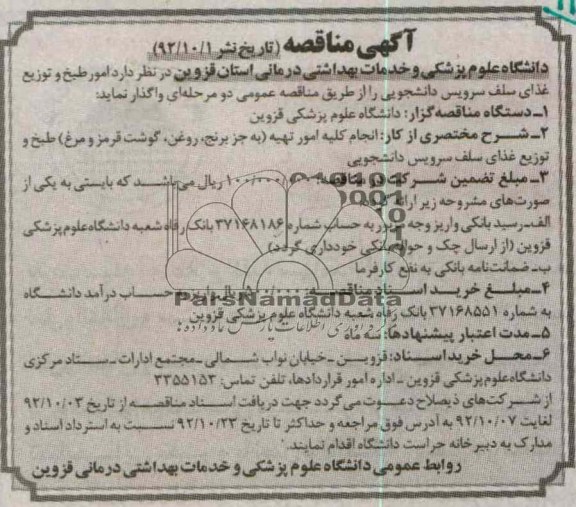 آگهی مناقصه (تاریخ نشر ۹۲/۱۰/۱)
دانشگاه علوم پزشکی و خدمات بهداشتی درمانی استان قزوین در نظر دارد امور طبخ و توزیع
غذای سلف سرویس دانشجویی را از طریق مناقصه عمومی دو مرحله‌ای واگذار نماید:
۱ـ دستگاه مناقصه‌گزار: دانشگاه علوم پزشکی قزوین
۲ـ شرح مختصری از کار: انجام کلیه امور تهیه (به جز برنج، روغن، گوشت قرمز و مرغ) طبخ و
توزیع غذای سلف سرویس دانشجویی
۳ـ مبلغ تضمین شرکت در مناقصه: ریال می‌باشد که بایستی به یکی از
صورت‌های مشروحه زیر ارائه
الف‌ـ رسید بانکی واریز وجه مزبور به حساب شماره ۳۷۱۶۸۱۸۶ بانک رفاه شعبه دانشگاه علوم پزشکی
قزوین (از ارسال چک و حواله بانکی خودداری گردد)
ب‌ـ ضمانت‌نامه بانکی به نفع کارفرما
۴ـ مبلغ خرید اسناد مناقصه: ریال واریز به حساب درآمد دانشگاه
ParsNamadData
به شماره ۳۷۱۶۸۵۵۱ بانک رفاه شعبه دانشگاه علوم پزشکی قزوین
گردآوری اطلاعات پارس نماد داده‌ها
۵ـ مدت اعتبار پیشنهادها: سه ماه
۶ـ محل خرید اسناد: قزوین ـ خیابان نواب شمالی ـ مجتمع ادارات ـ ستاد مرکزی
دانشگاه علوم پزشکی قزوین ـ اداره امور قراردادها، تلفن تماس: ۳۳۵۵۱۵۳
از شرکت‌های ذیصلاح دعوت می‌گردد جهت دریافت اسناد مناقصه از تاریخ ۹۲/۱۰/۰۳
لغایت ۹۲/۱۰/۰۷ به آدرس فوق مراجعه و حداکثر تا تاریخ ۹۲/۱۰/۲۳ نسبت به استرداد اسناد و
مدارک به دبیرخانه حراست دانشگاه اقدام نمایند.
روابط عمومی دانشگاه علوم پزشکی و خدمات بهداشتی درمانی قزوین